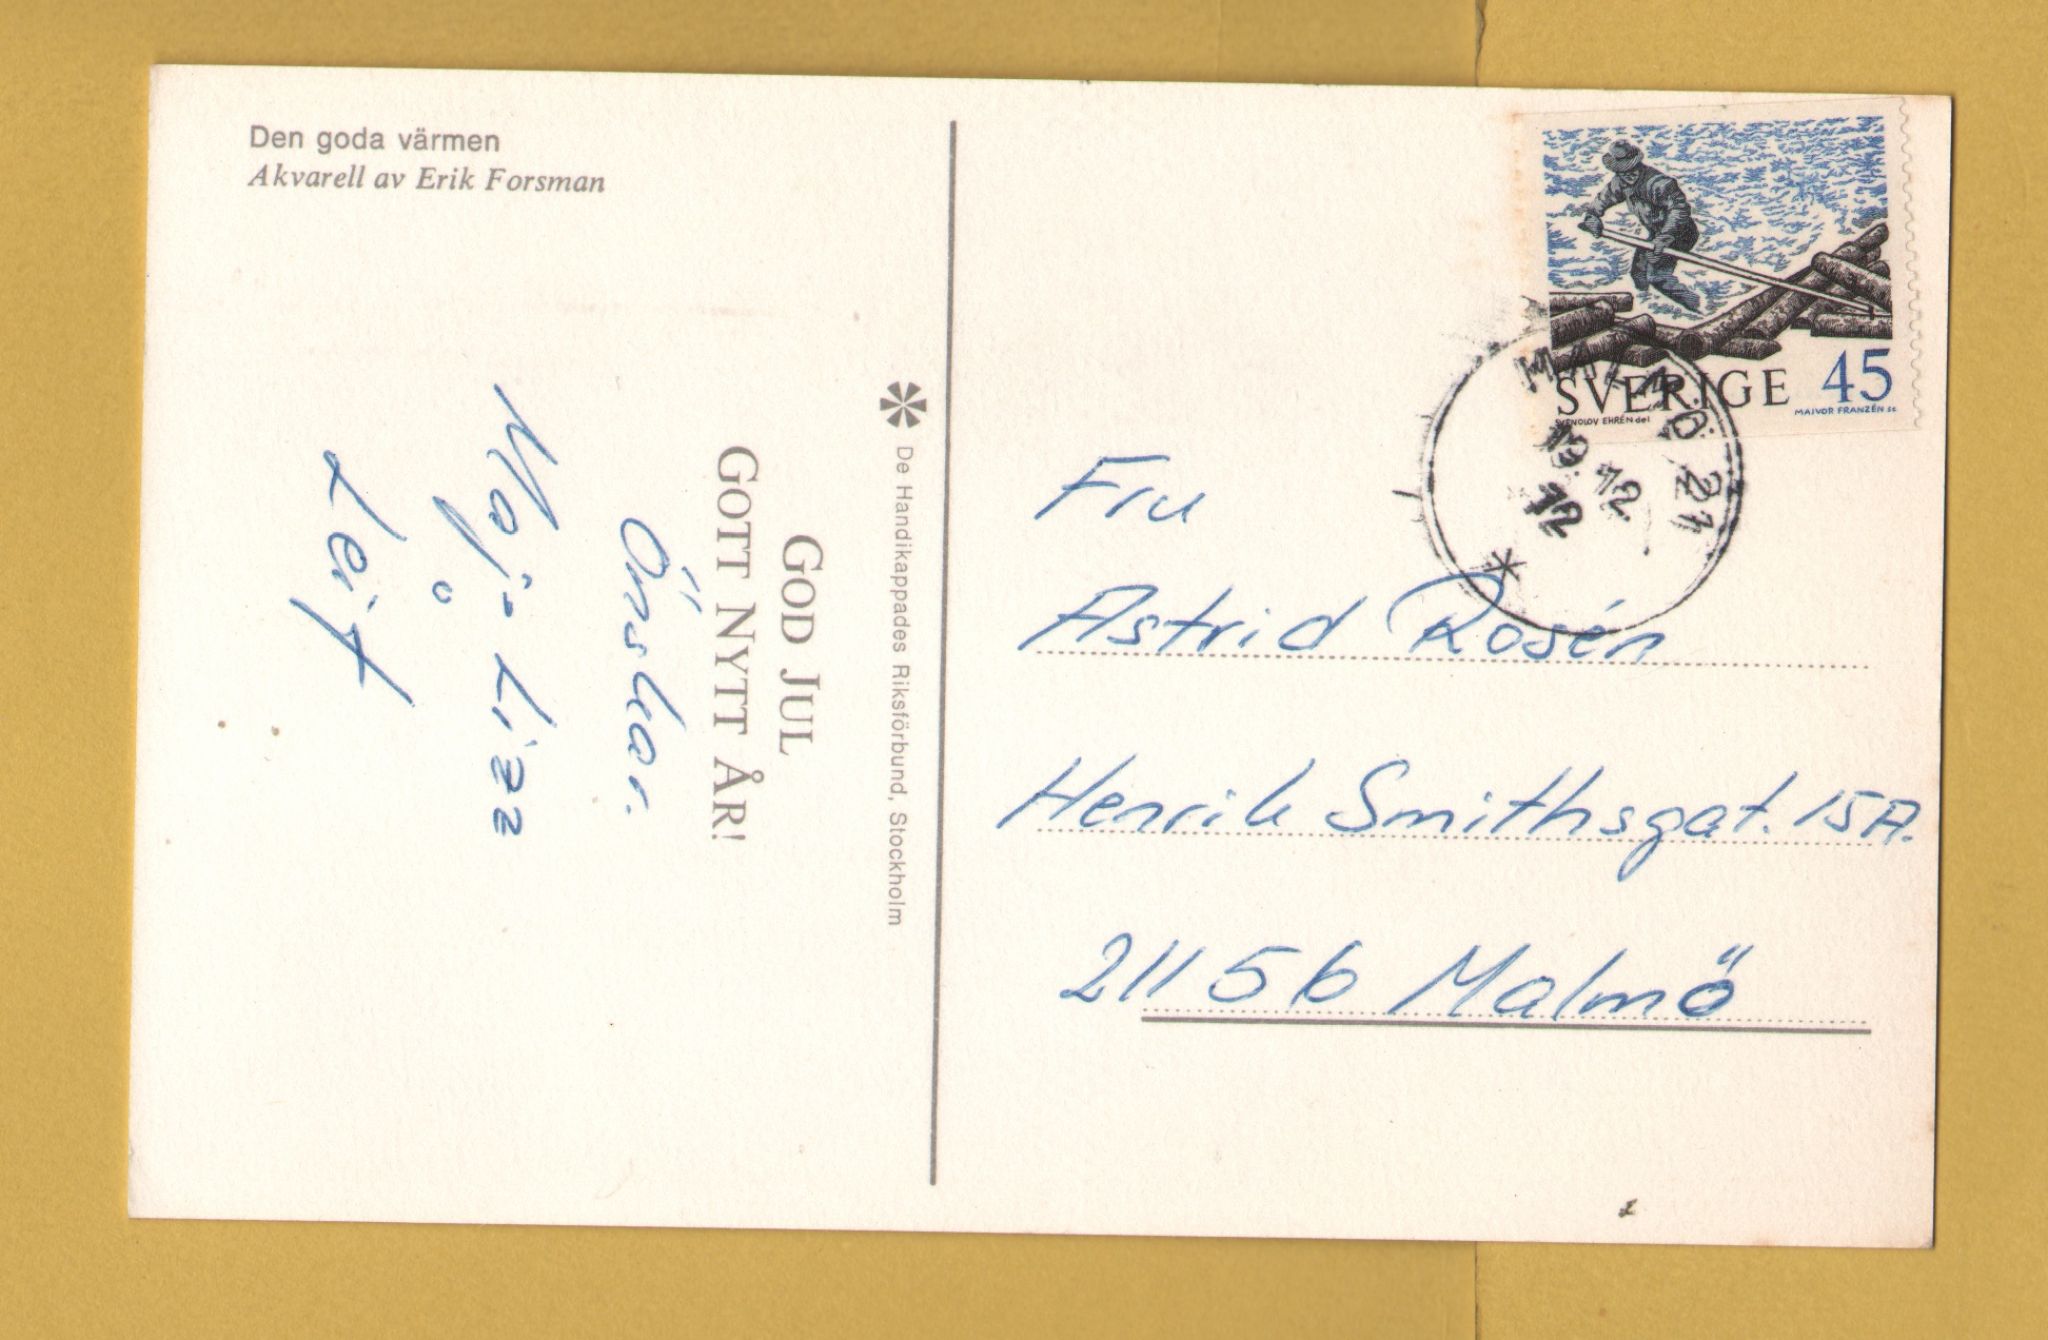 Den goda värmen
Akvarell av Erik Forsman
De Handikappades Riksförbund, Stockholm
GOD JUL
GOTT NYTT ÅR!
Önskar.
Maj-Lizz
o
Leif
SVERIGE 45
SVENOLOV EHRÉN del
MAJVOR FRANZÉN sc
MALMÖ 21
19.12.
72
Fru
Astrid Rosén
Henrik Smithsgat. 15A.
21156 Malmö